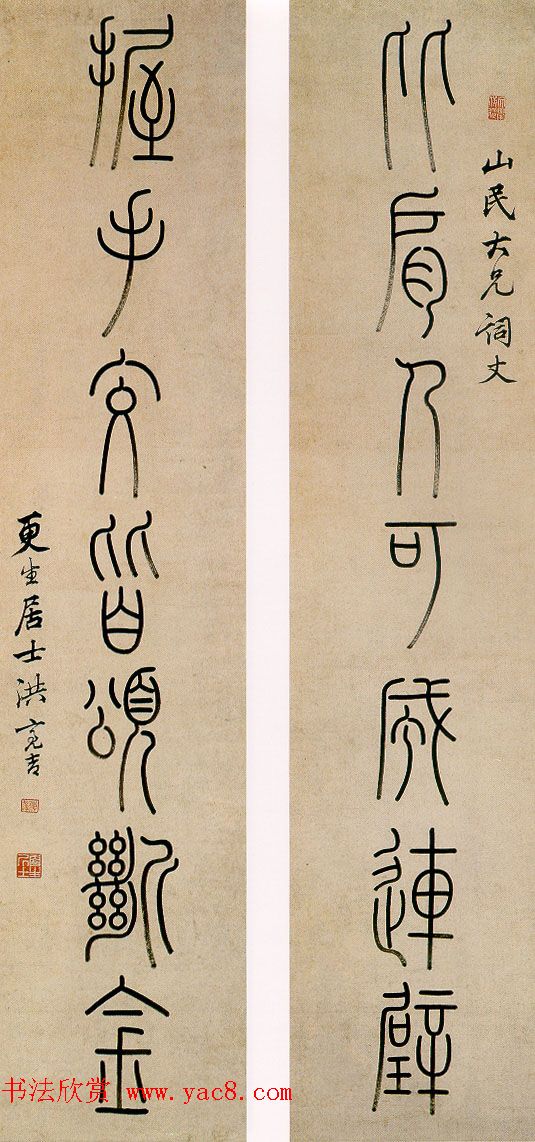 山民大兄詞丈
比肩人可成連璧
握手交皆頌斷金
更生居士洪亮吉
书法欣赏 www.yac8.com